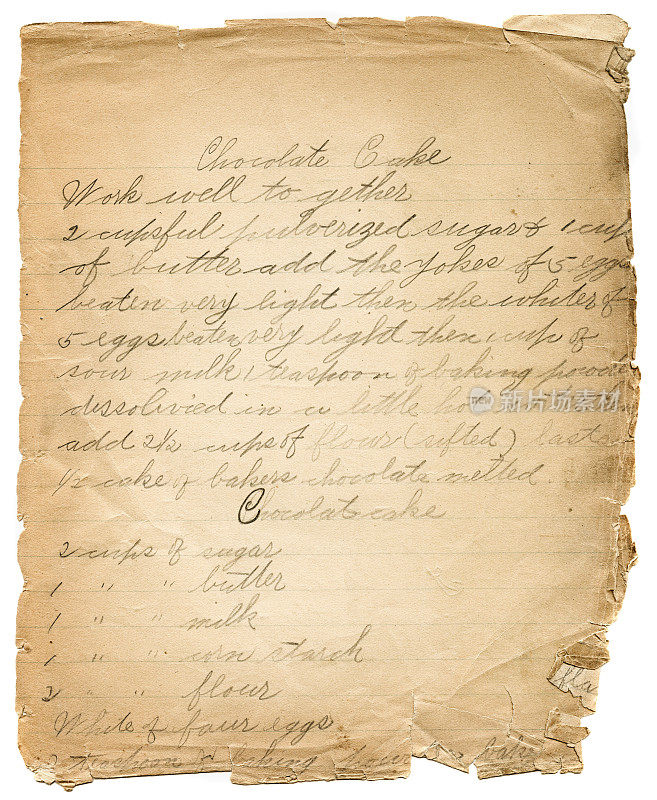 Chocolate Cake
Work well to gether
2 cupsful pulverized sugar & 1 cup
of butter add the yokes of 5 eggs
beaten very light then the whites of
5 eggs beaten very light then 1 cup of
sour milk 1 teaspoon of baking powde
dissolivied in a little ho
add 2½ cups of flour (sifted) lasts
½ cake of bakers chocolate melted.
Chocolate cake
2 cups of sugar
1 " " butter
1 " " milk
1 " " corn starch
2 " " flour
White of four eggs
2 teaspoon of baking
fla
新片场素材